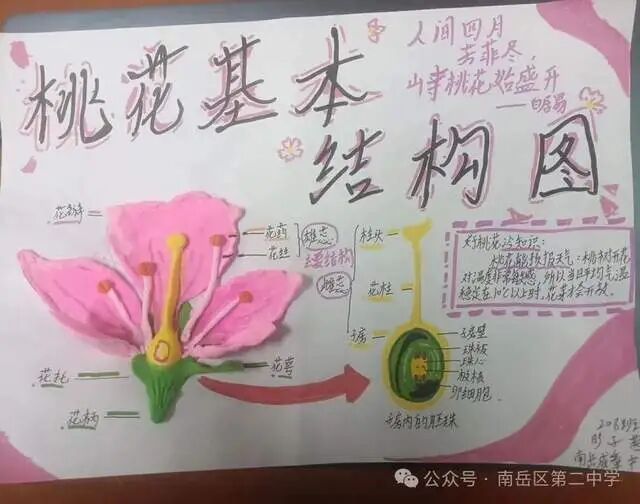 桃花基本
结构图
人间四月
芳菲尽,
山寺桃花始盛开
——白居易
花瓣
花药
花丝
雄蕊
主要结构
雌蕊
柱头
花柱
子房
花托
花萼
花柄
子房壁
珠被
珠心
极核
卵细胞
子房内的胚珠
桃花冷知识:
桃花能预报天气:桃树对开花
对温度非常敏感,所以当日平均气温
稳定在10℃以上时,花朵才会开放。
公众号·南岳区第二中学